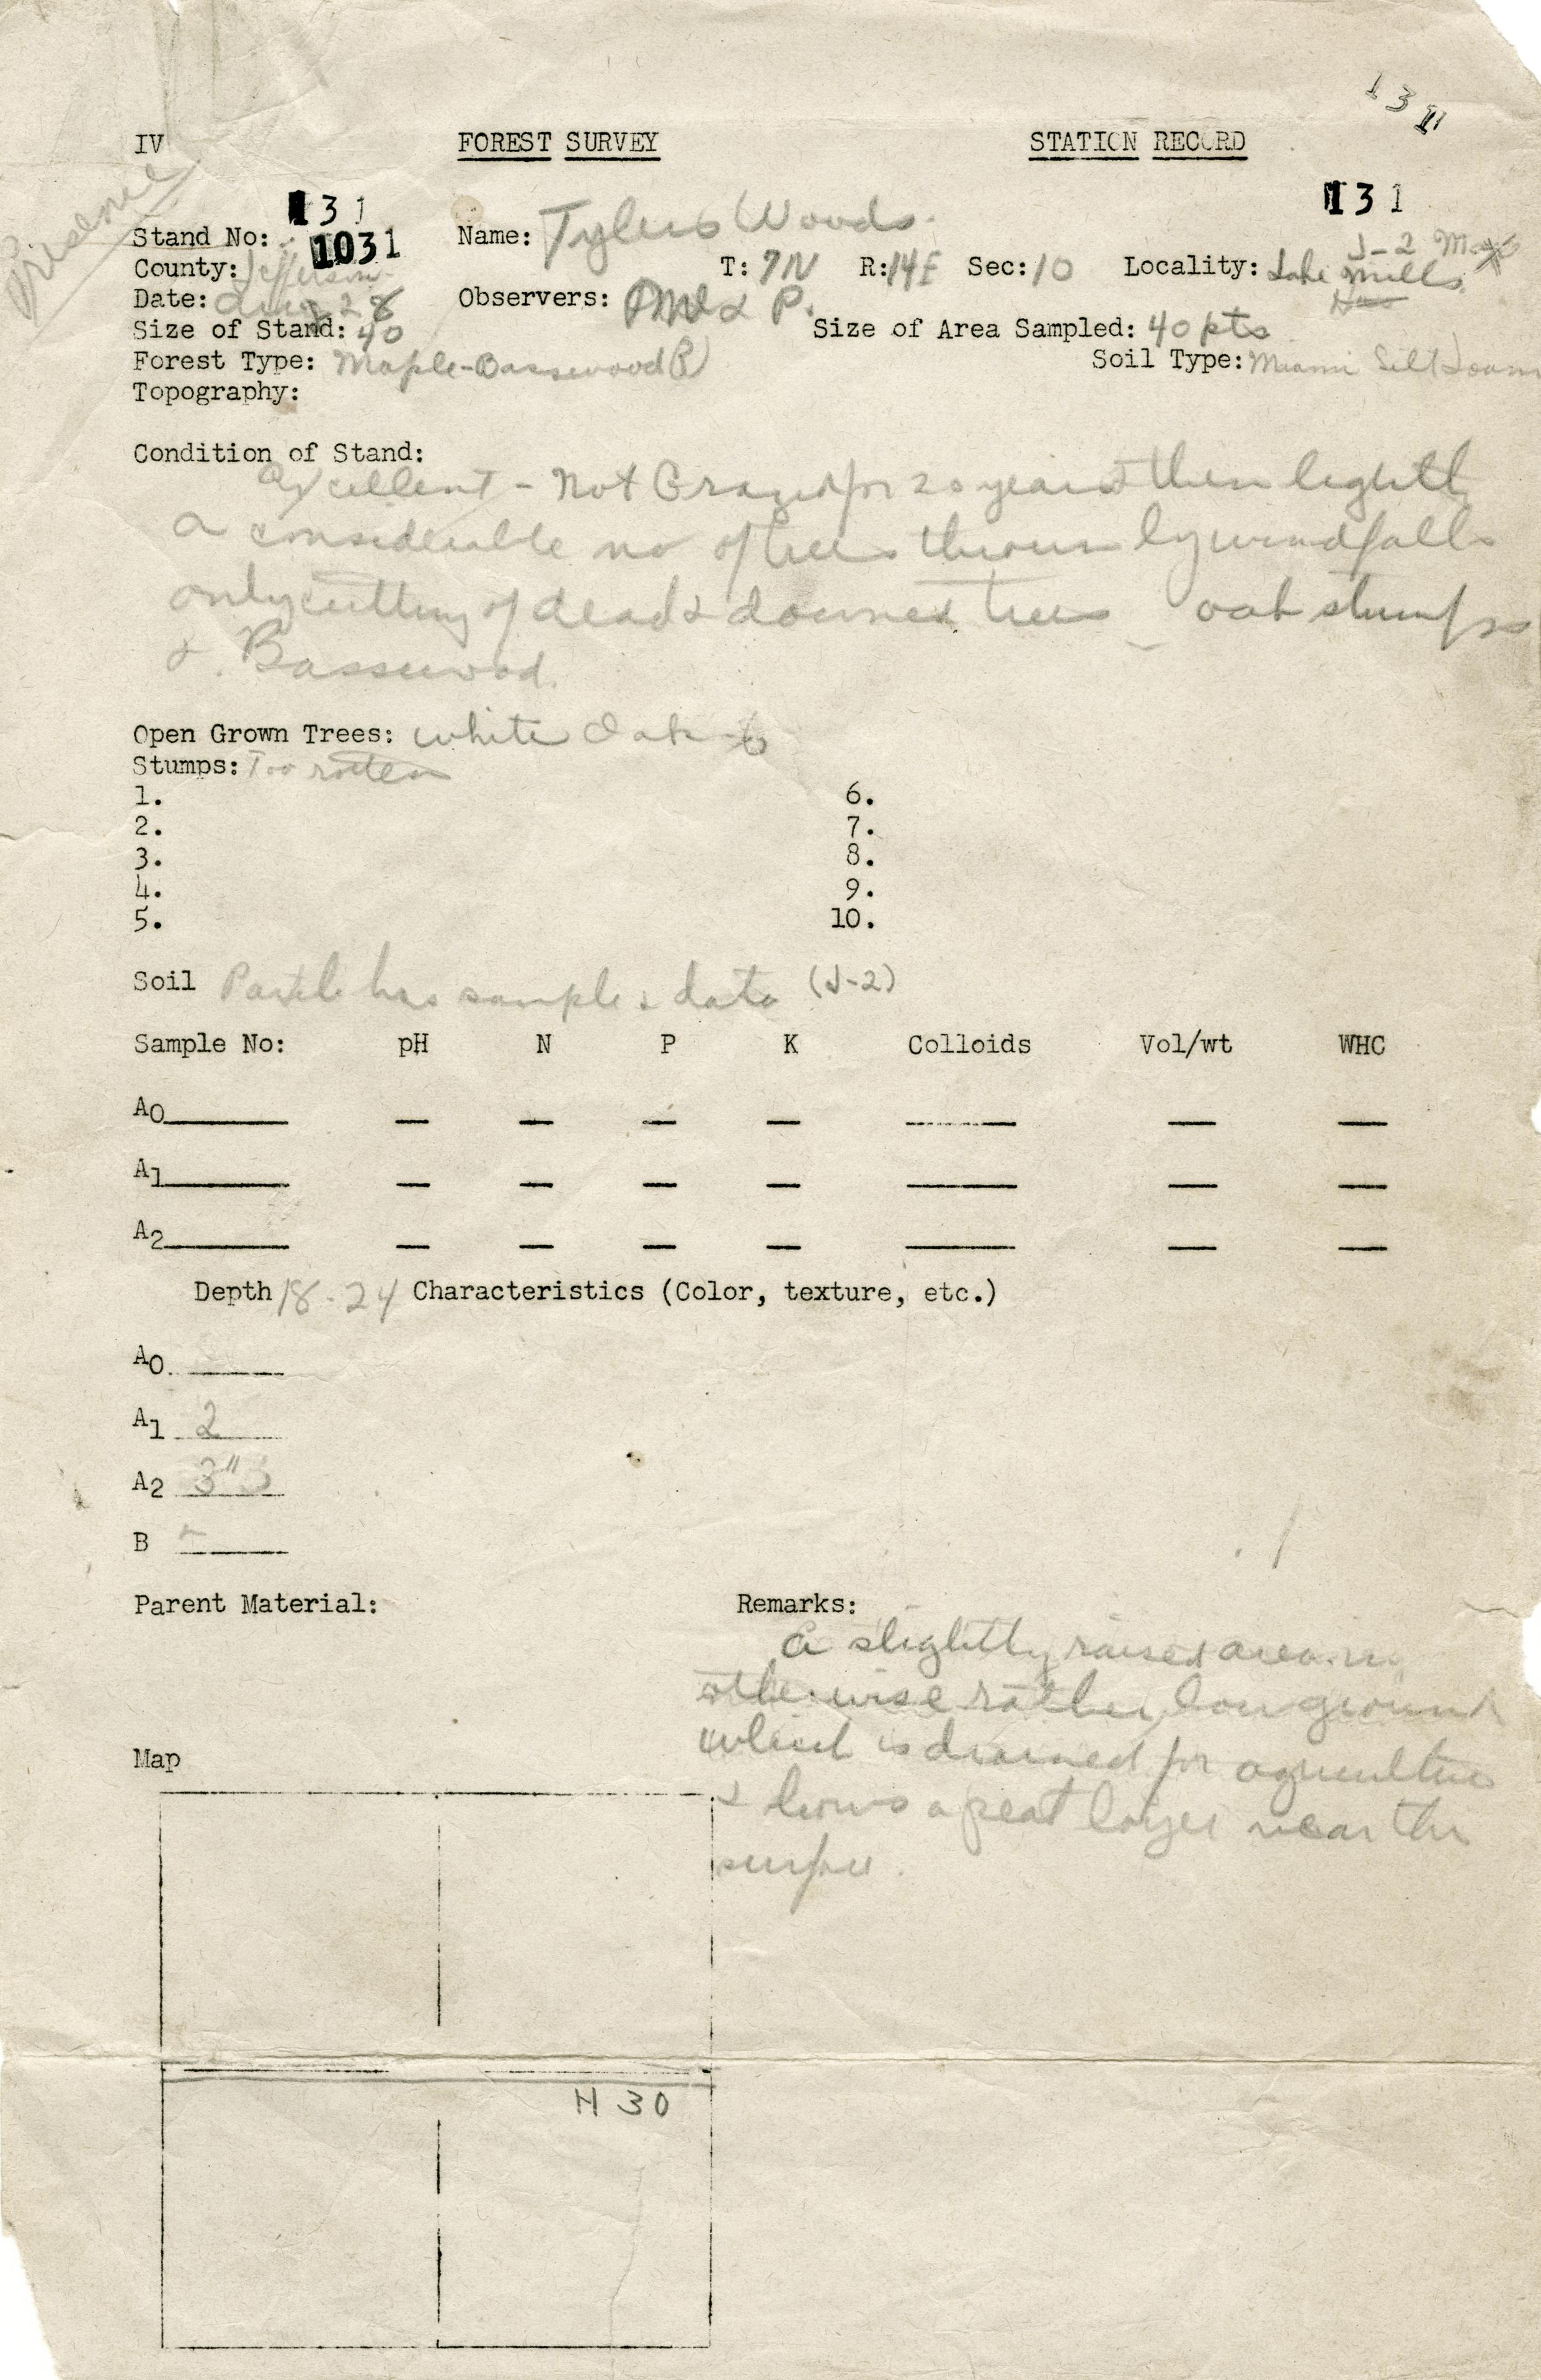 131
IV FOREST SURVEY STATION RECORD
Presence
131 131
Stand No: 1031 Name: Tylers Woods. J-2 Map
County: Jefferson T: 7N R: 14E Sec: 10 Locality: Lake Mills
Date: Aug 28 Observers: & P.
Size of Stand: 40 Size of Area Sampled: 40 pts
Forest Type: Maple-Basswood (R) Soil Type: Miami Silt Loam
Topography:
Condition of Stand:
Excellent - Not Grazed for 20 years & then lightly
a considerable no of trees thrown by windfall
only cutting of dead & downed trees - oak stumps
& Basswood.
Open Grown Trees: White Oak - 6
Stumps: Too rotten
1. 6.
2. 7.
3. 8.
4. 9.
5. 10.
Soil has sample & data (J-2)
Sample No: pH N P K Colloids Vol/wt WHC
A0
A1
A2
Depth 18-24 Characteristics (Color, texture, etc.)
A0
A1 2
A2 3"
B
Parent Material: Remarks:
A slightly raised area in
otherwise rather low ground
which is drained for agriculture
& has a peat layer near the
surface.
Map
H 30